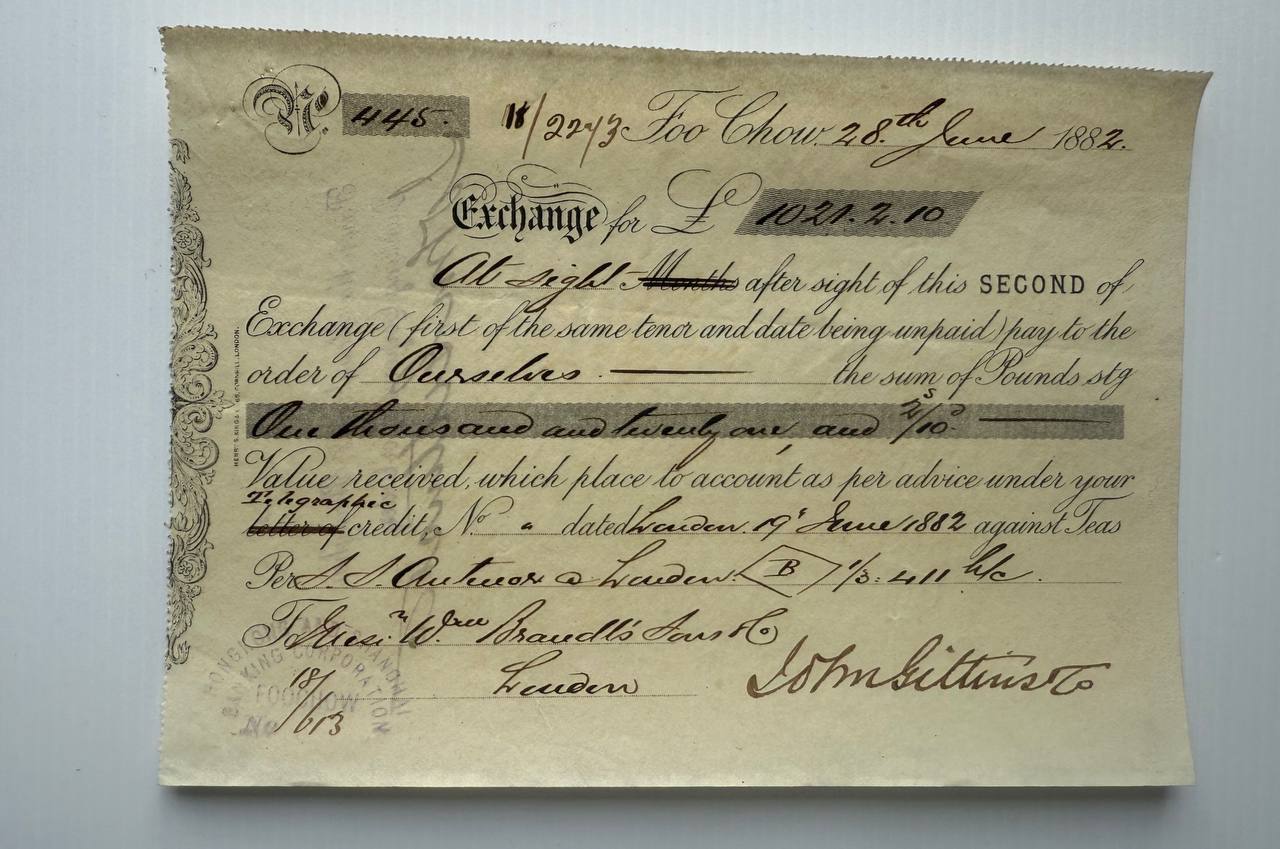 No 445. 18/2273 Foo Chow. 28th June 1882.
Exchange for £ 1021.2.10
At sight Months after sight of this SECOND of
Exchange (first of the same tenor and date being unpaid) pay to the
order of Ourselves the sum of Pounds stg
One thousand and twenty one, and 2s/10d
Value received, which place to account as per advice under your
Telegraphic
letter of credit, No. " dated London. 19th June 1882 against Teas
Per S.S. Antenor @ London. B 1/3: 411 h/c.
To Messrs Wm Brandt's Sons & Co
London
John Gittins & Co
HONGKONG AND SHANGHAI
BANKING CORPORATION
FOOCHOW
No 18/613
HENRY S. KING & Co 65, CORNHILL, LONDON.